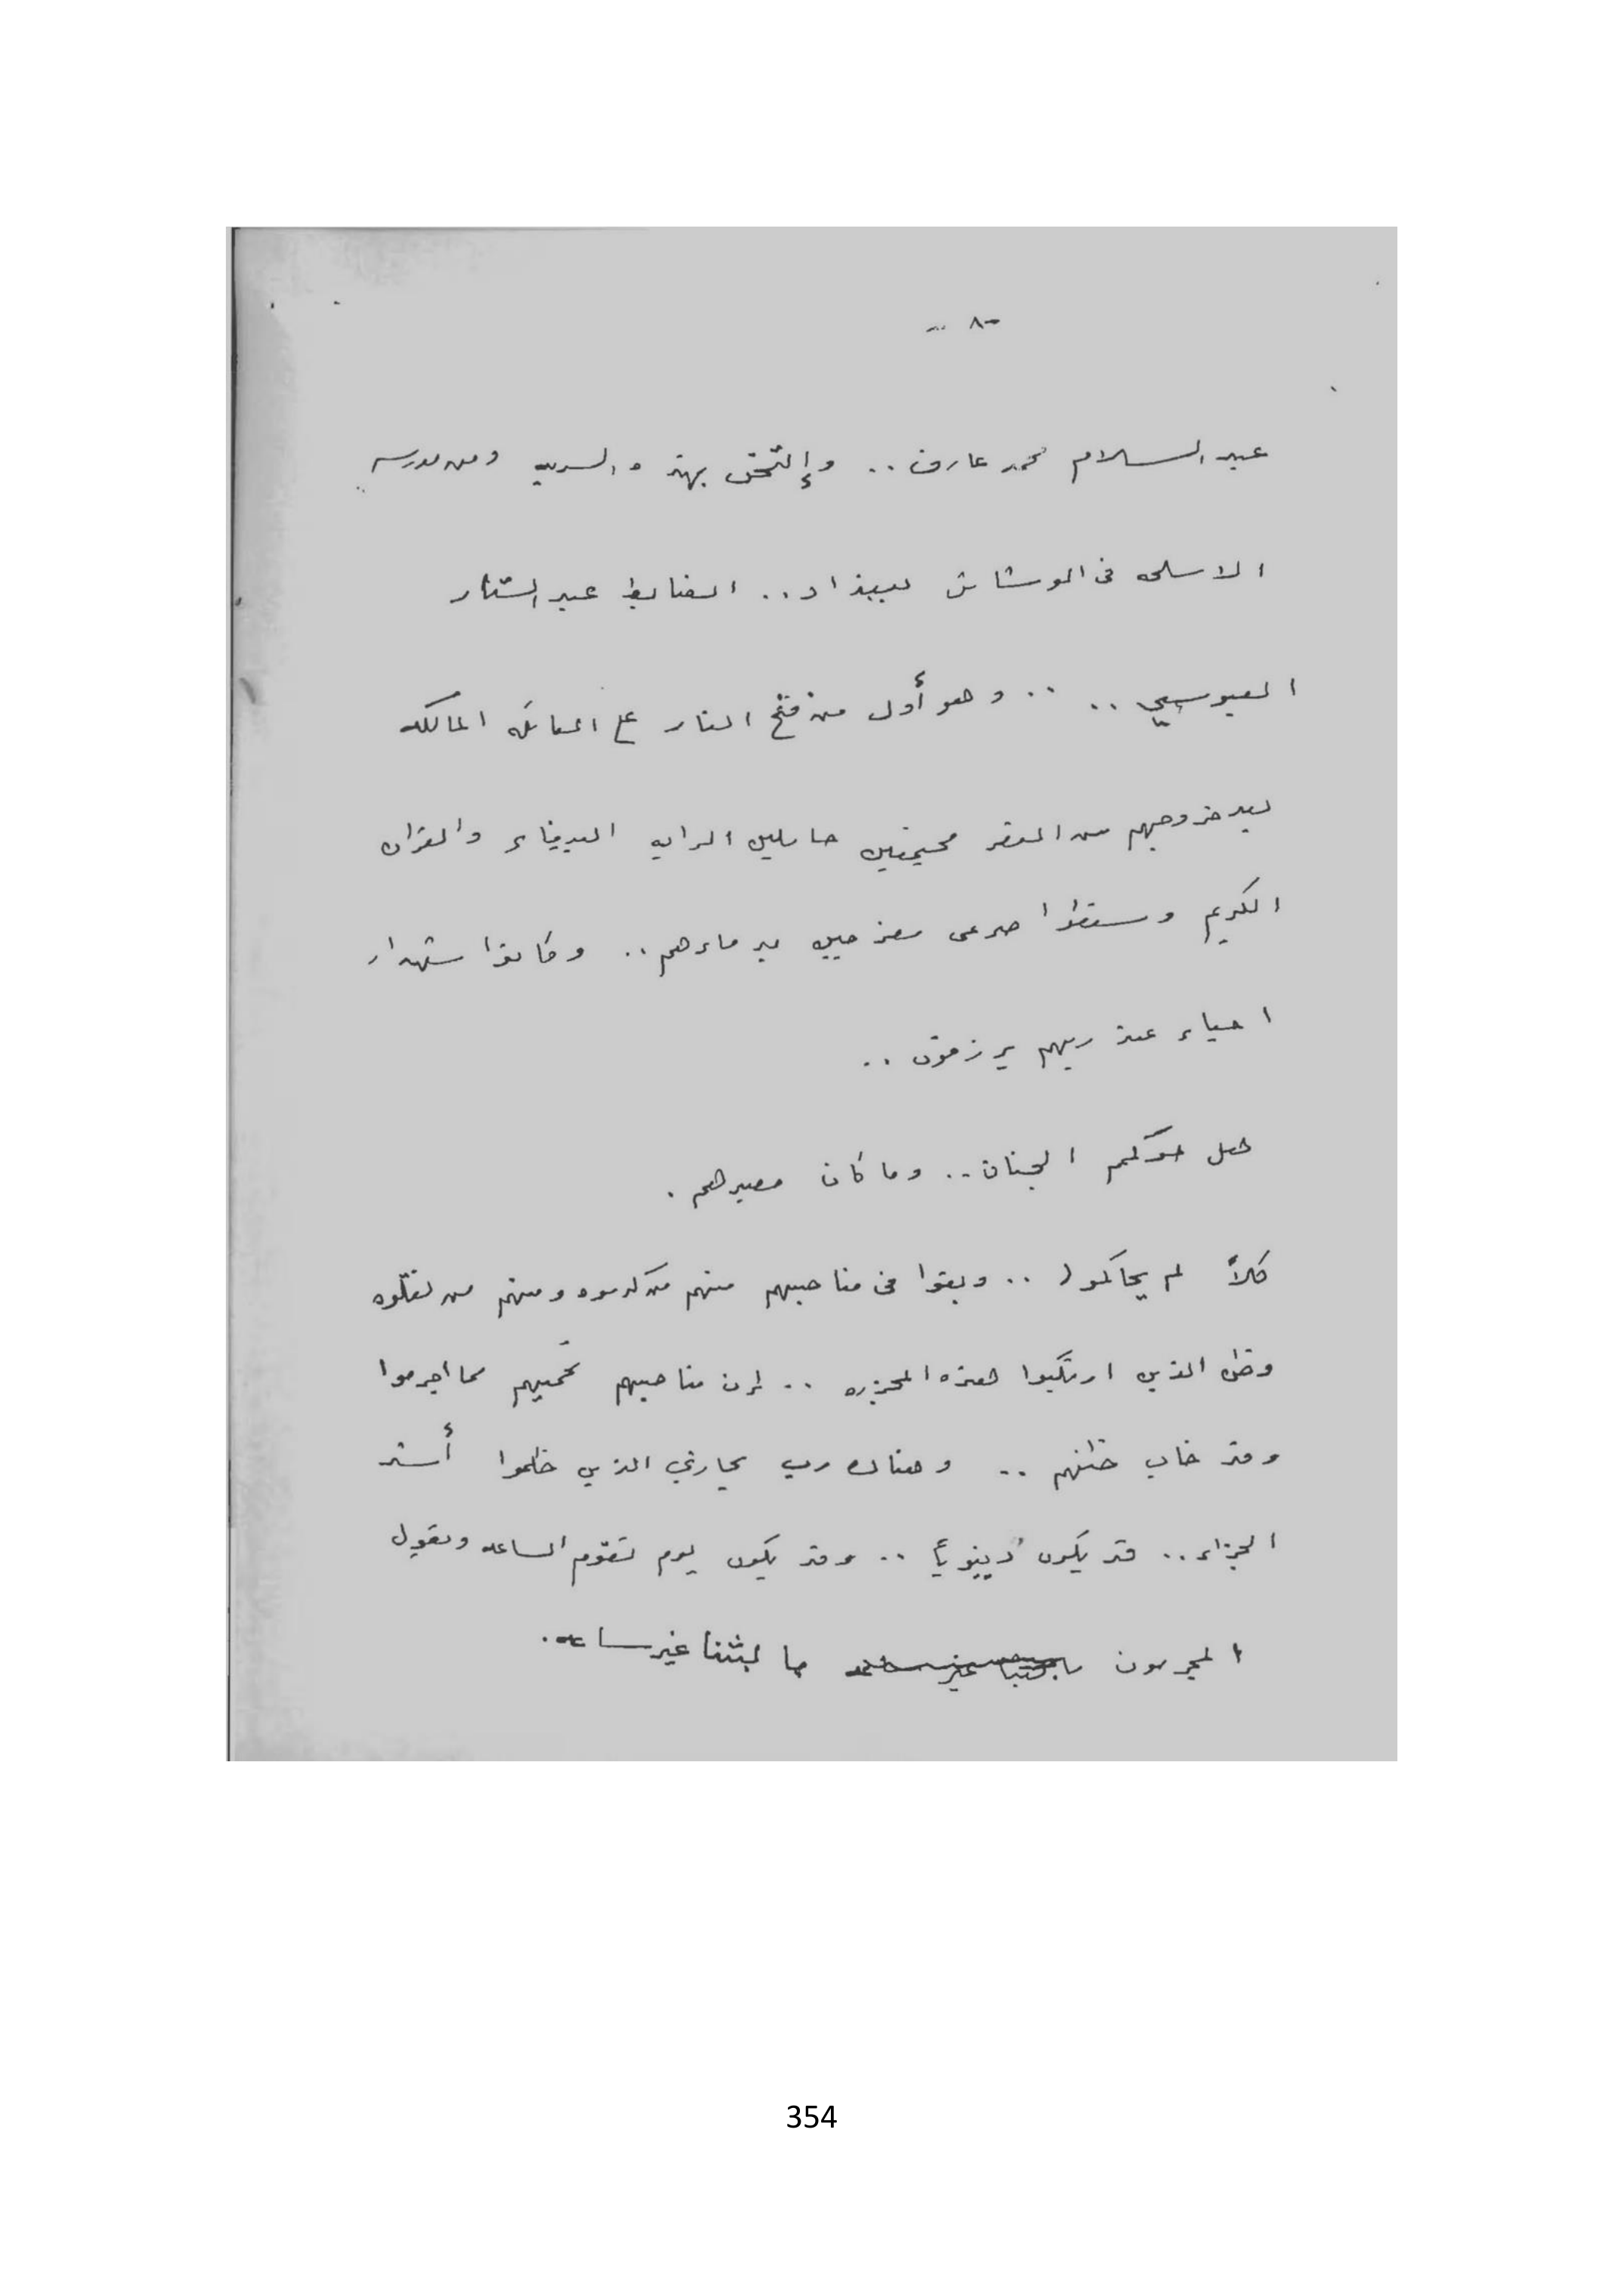 - ٨ -
عبد السلام محمد عارف .. وإلتحق بهذه السريه ومن مدرسه
الاسلحه في الوشاش ببغداد .. الضابط عبد الستار
العبوسي .. .. وهو أول من فتح النار على العائله المالكه
بعد خروجهم من القصر محيطين حاملين الرايه البيضاء والقران
الكريم وسقطوا صرعى مضرجين بدماءهم .. وكانوا شهداء
احياء عند ربهم يرزقون ..
هل حوكم الجناة .. وما كان مصيرهم .
كلاً لم يحاكموا .. وبقوا في مناصبهم منهم من كرموه ومنهم من نقلوه
وظن الذين ارتكبوا هذه المجزره .. إن مناصبهم تحميهم مما اجرموا
وقد خاب ظنهم .. وهناك رب يجازي الذين ظلموا أشد
الجزاء .. قد يكون دينوياً .. وقد يكون يوم تقوم الساعه ويقول
المجرمون ما لبثنا غير ساعه .
354